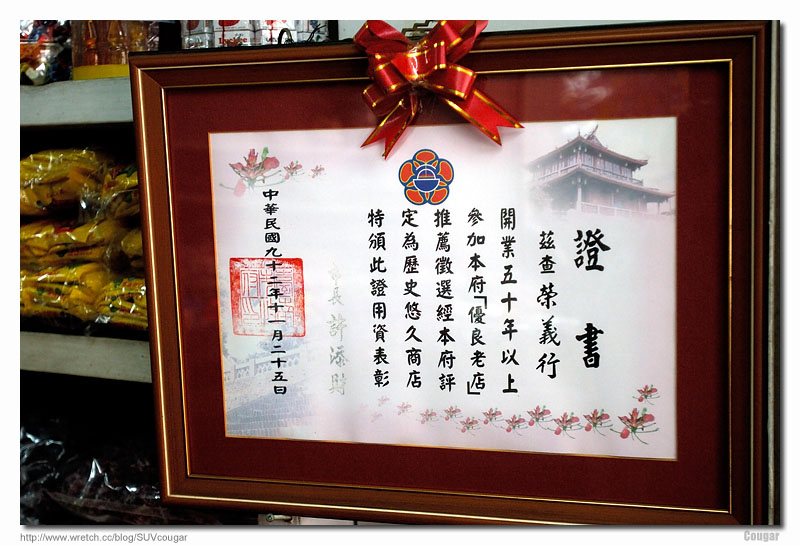 證書
茲查榮義行
開業五十年以上
參加本府「優良老店」
推薦徵選經本府評
定為歷史悠久商店
特頒此證用資表彰
市長 許添財
中華民國九十二年十一月二十五日
http://www.wretch.cc/blog/SUVcougar
Cougar